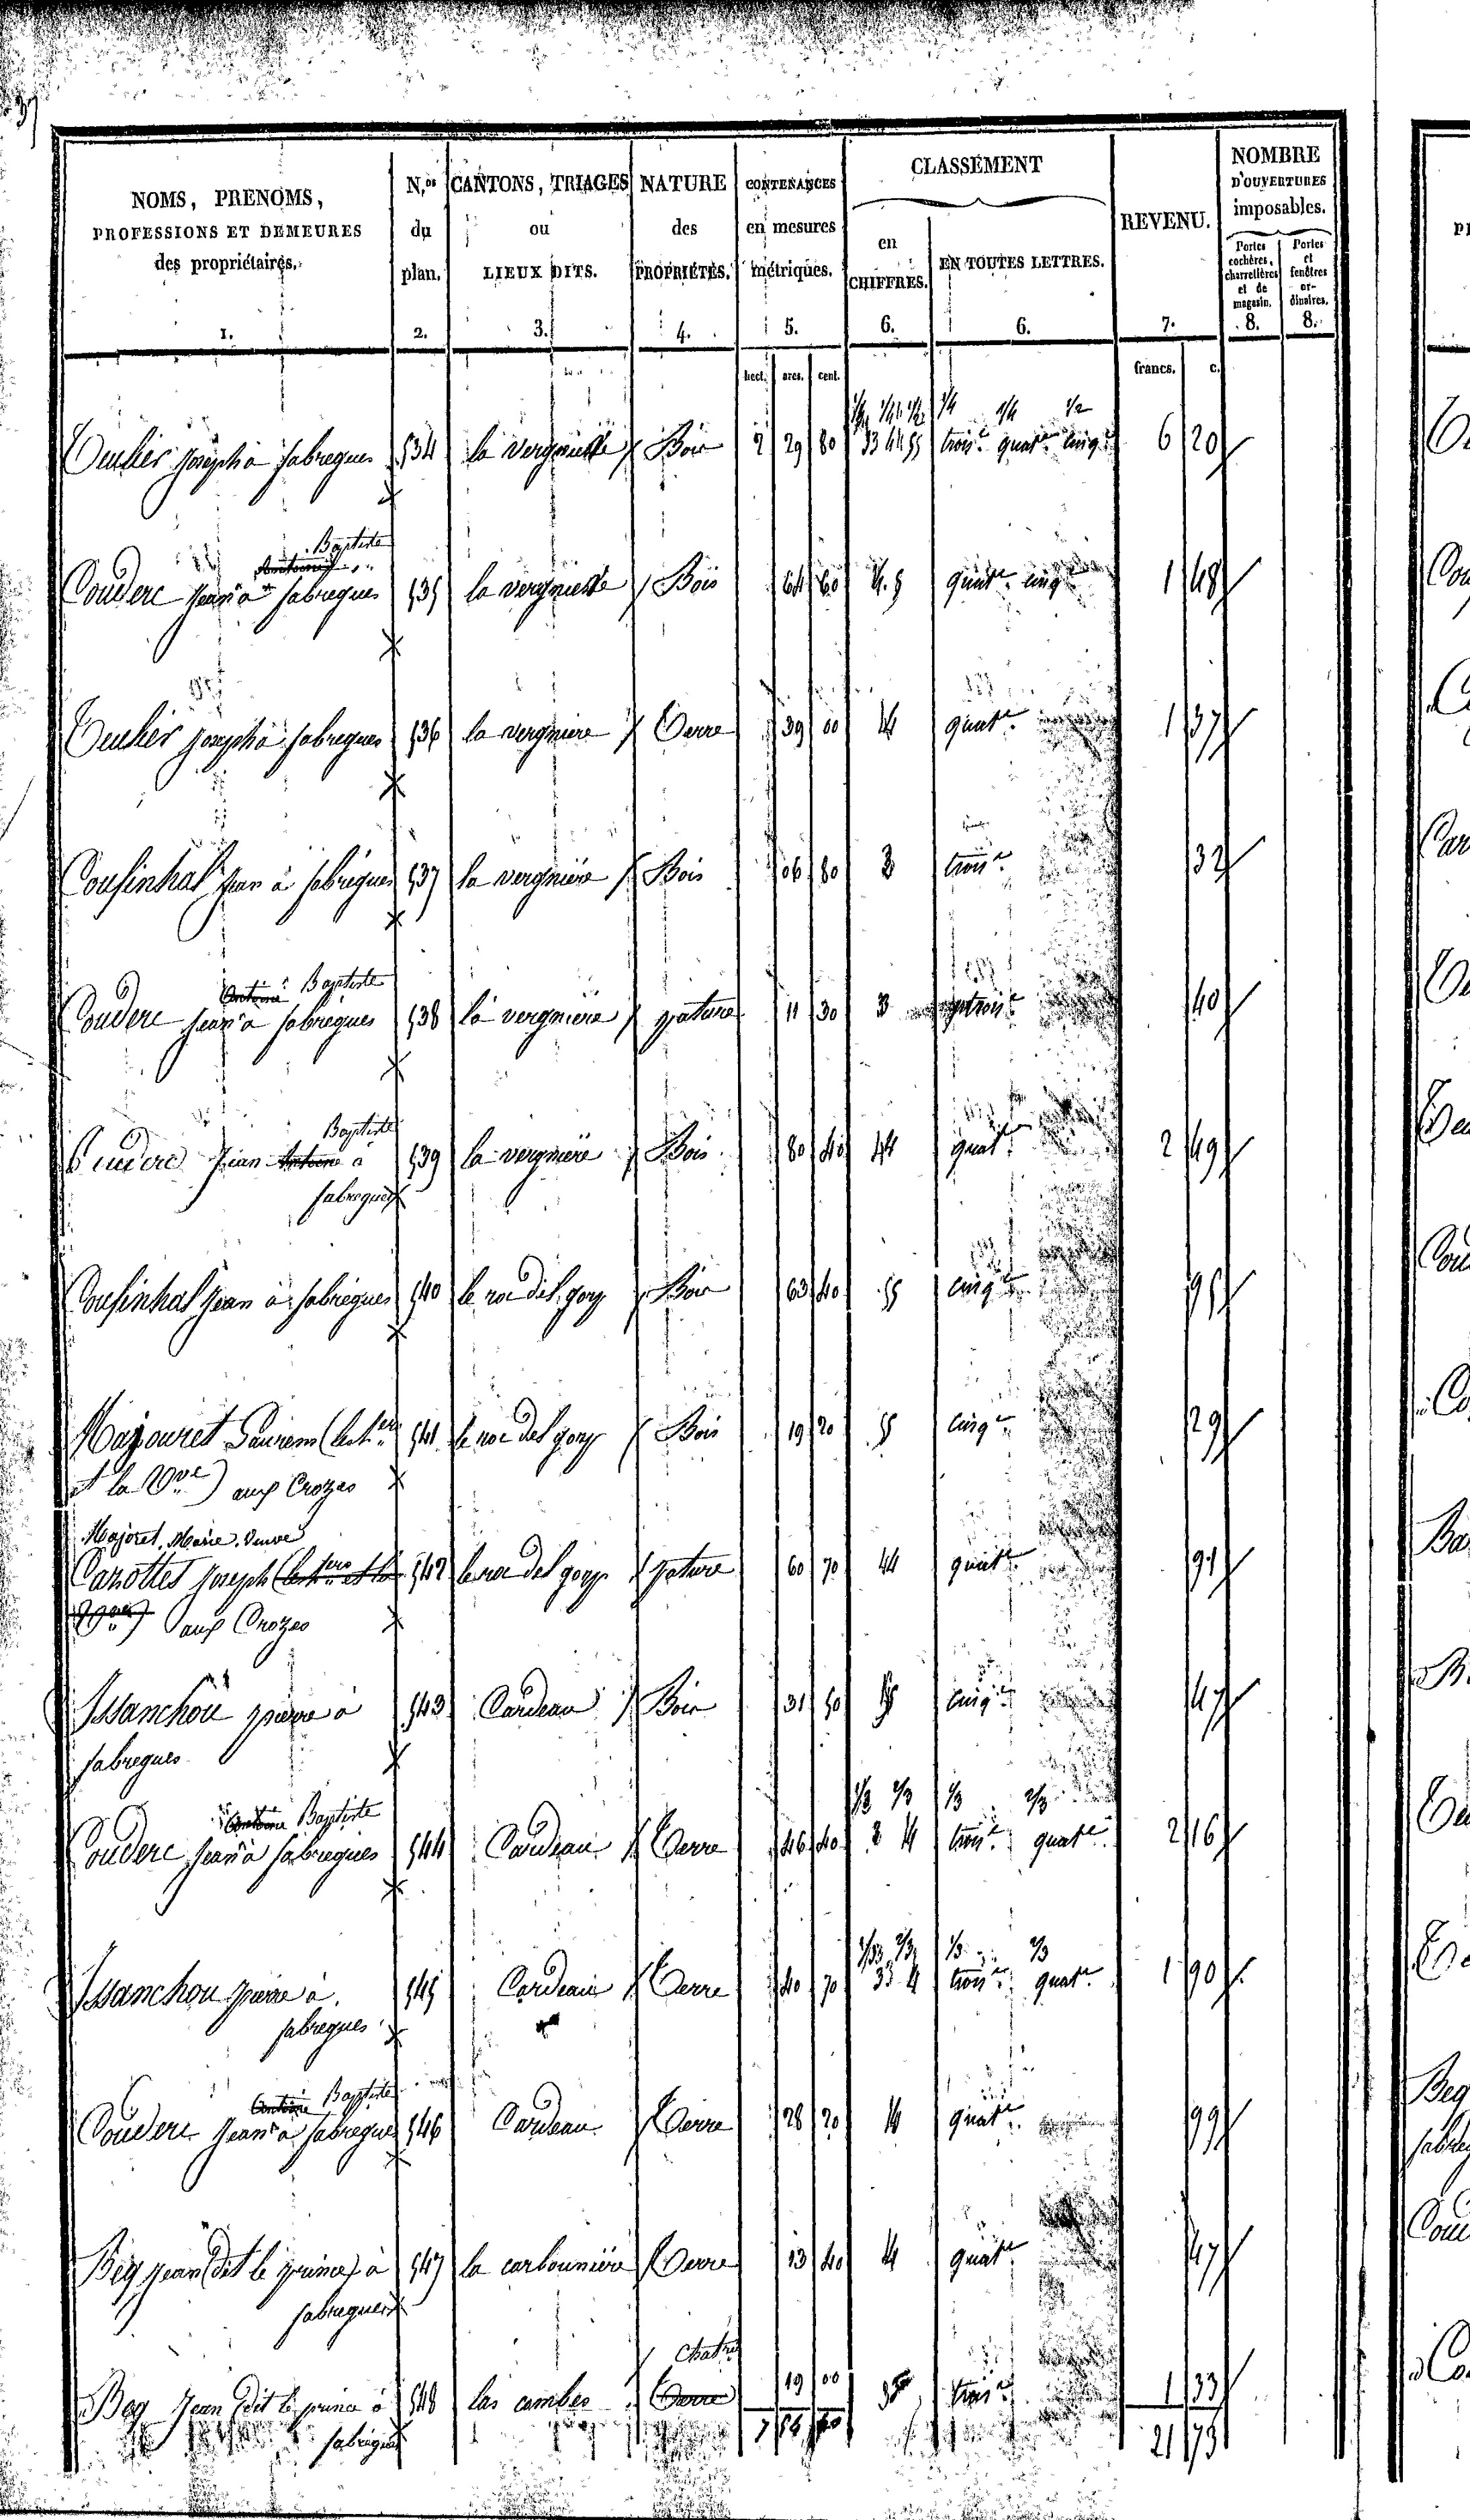 NOMS, PRENOMS, PROFESSIONS ET DEMEURES des propriétaires. 1. | N.os du plan. 2. | CANTONS, TRIAGES ou LIEUX DITS. 3. | NATURE des PROPRIÉTÉS. 4. | CONTENANCES en mesures métriques. 5. | CLASSEMENT en CHIFFRES. 6. | EN TOUTES LETTRES. 6. | REVENU. 7. | NOMBRE D'OUVERTURES imposables. Portes cochères, charretières et de magasin. 8. | Portes et fenêtres ordinaires. 8.
hect. ares. cent. francs. c.
1/4 1/4 1/2 1/4 1/4 1/2
joseph à fabregues 534 la vergniette Bois 2 29 80 3 4 5 trois.e quat.e cinq.e 6 20
Baptiste
Antoine
Couderc jean à fabregues 535 la vergniette Bois 64 60 4. 5 quat.e cinq.e 1 48
joseph à fabregues 536 la vergniere Terre 39 00 4 quat.e 1 37
Cousinhal jean à fabregues 537 la vergniere Bois 06 80 3 trois.e 32
Antoine Baptiste
Couderc jean à fabregues 538 la vergniere pature 11 30 3 trois.e 40
Baptiste
Couderc jean Antoine à 539 la vergniere Bois 80 40 4 quat.e 2 49
fabregues
Cousinhal jean à fabregues 540 le roc del gorg Bois 63 40 5 cinq.e 95
Majouret 541 le roc del gorg Bois 19 20 5 cinq.e 29
et la Vve) aux Crozes
Majoret, Marie, Veuve
Carottes joseph 542 le roc del gorg pature 60 70 4 quat.e 91
aux Crozes
Issanchou pierre à 543 Cardeau Bois 31 50 5 cinq.e 47
fabregues
Antoine Baptiste 1/3 2/3 1/3 2/3
Couderc jean à fabregues 544 Cardeau Terre 46 40 3 4 trois.e quat.e 2 16
1/3 2/3 1/3 2/3
Issanchou pierre à 545 Cardeau Terre 40 70 3 4 trois.e quat.e 1 90
fabregues
Antoine Baptiste
Couderc jean à fabregues 546 Cardeau Terre 28 20 4 quat.e 99
Beq jean (dit le prince) à 547 la carbouniere Terre 13 40 4 quat.e 47
fabregues
Beq jean (dit le prince à 548 las combes Terre 19 00 trois.e 1 33
fabregues
21 73